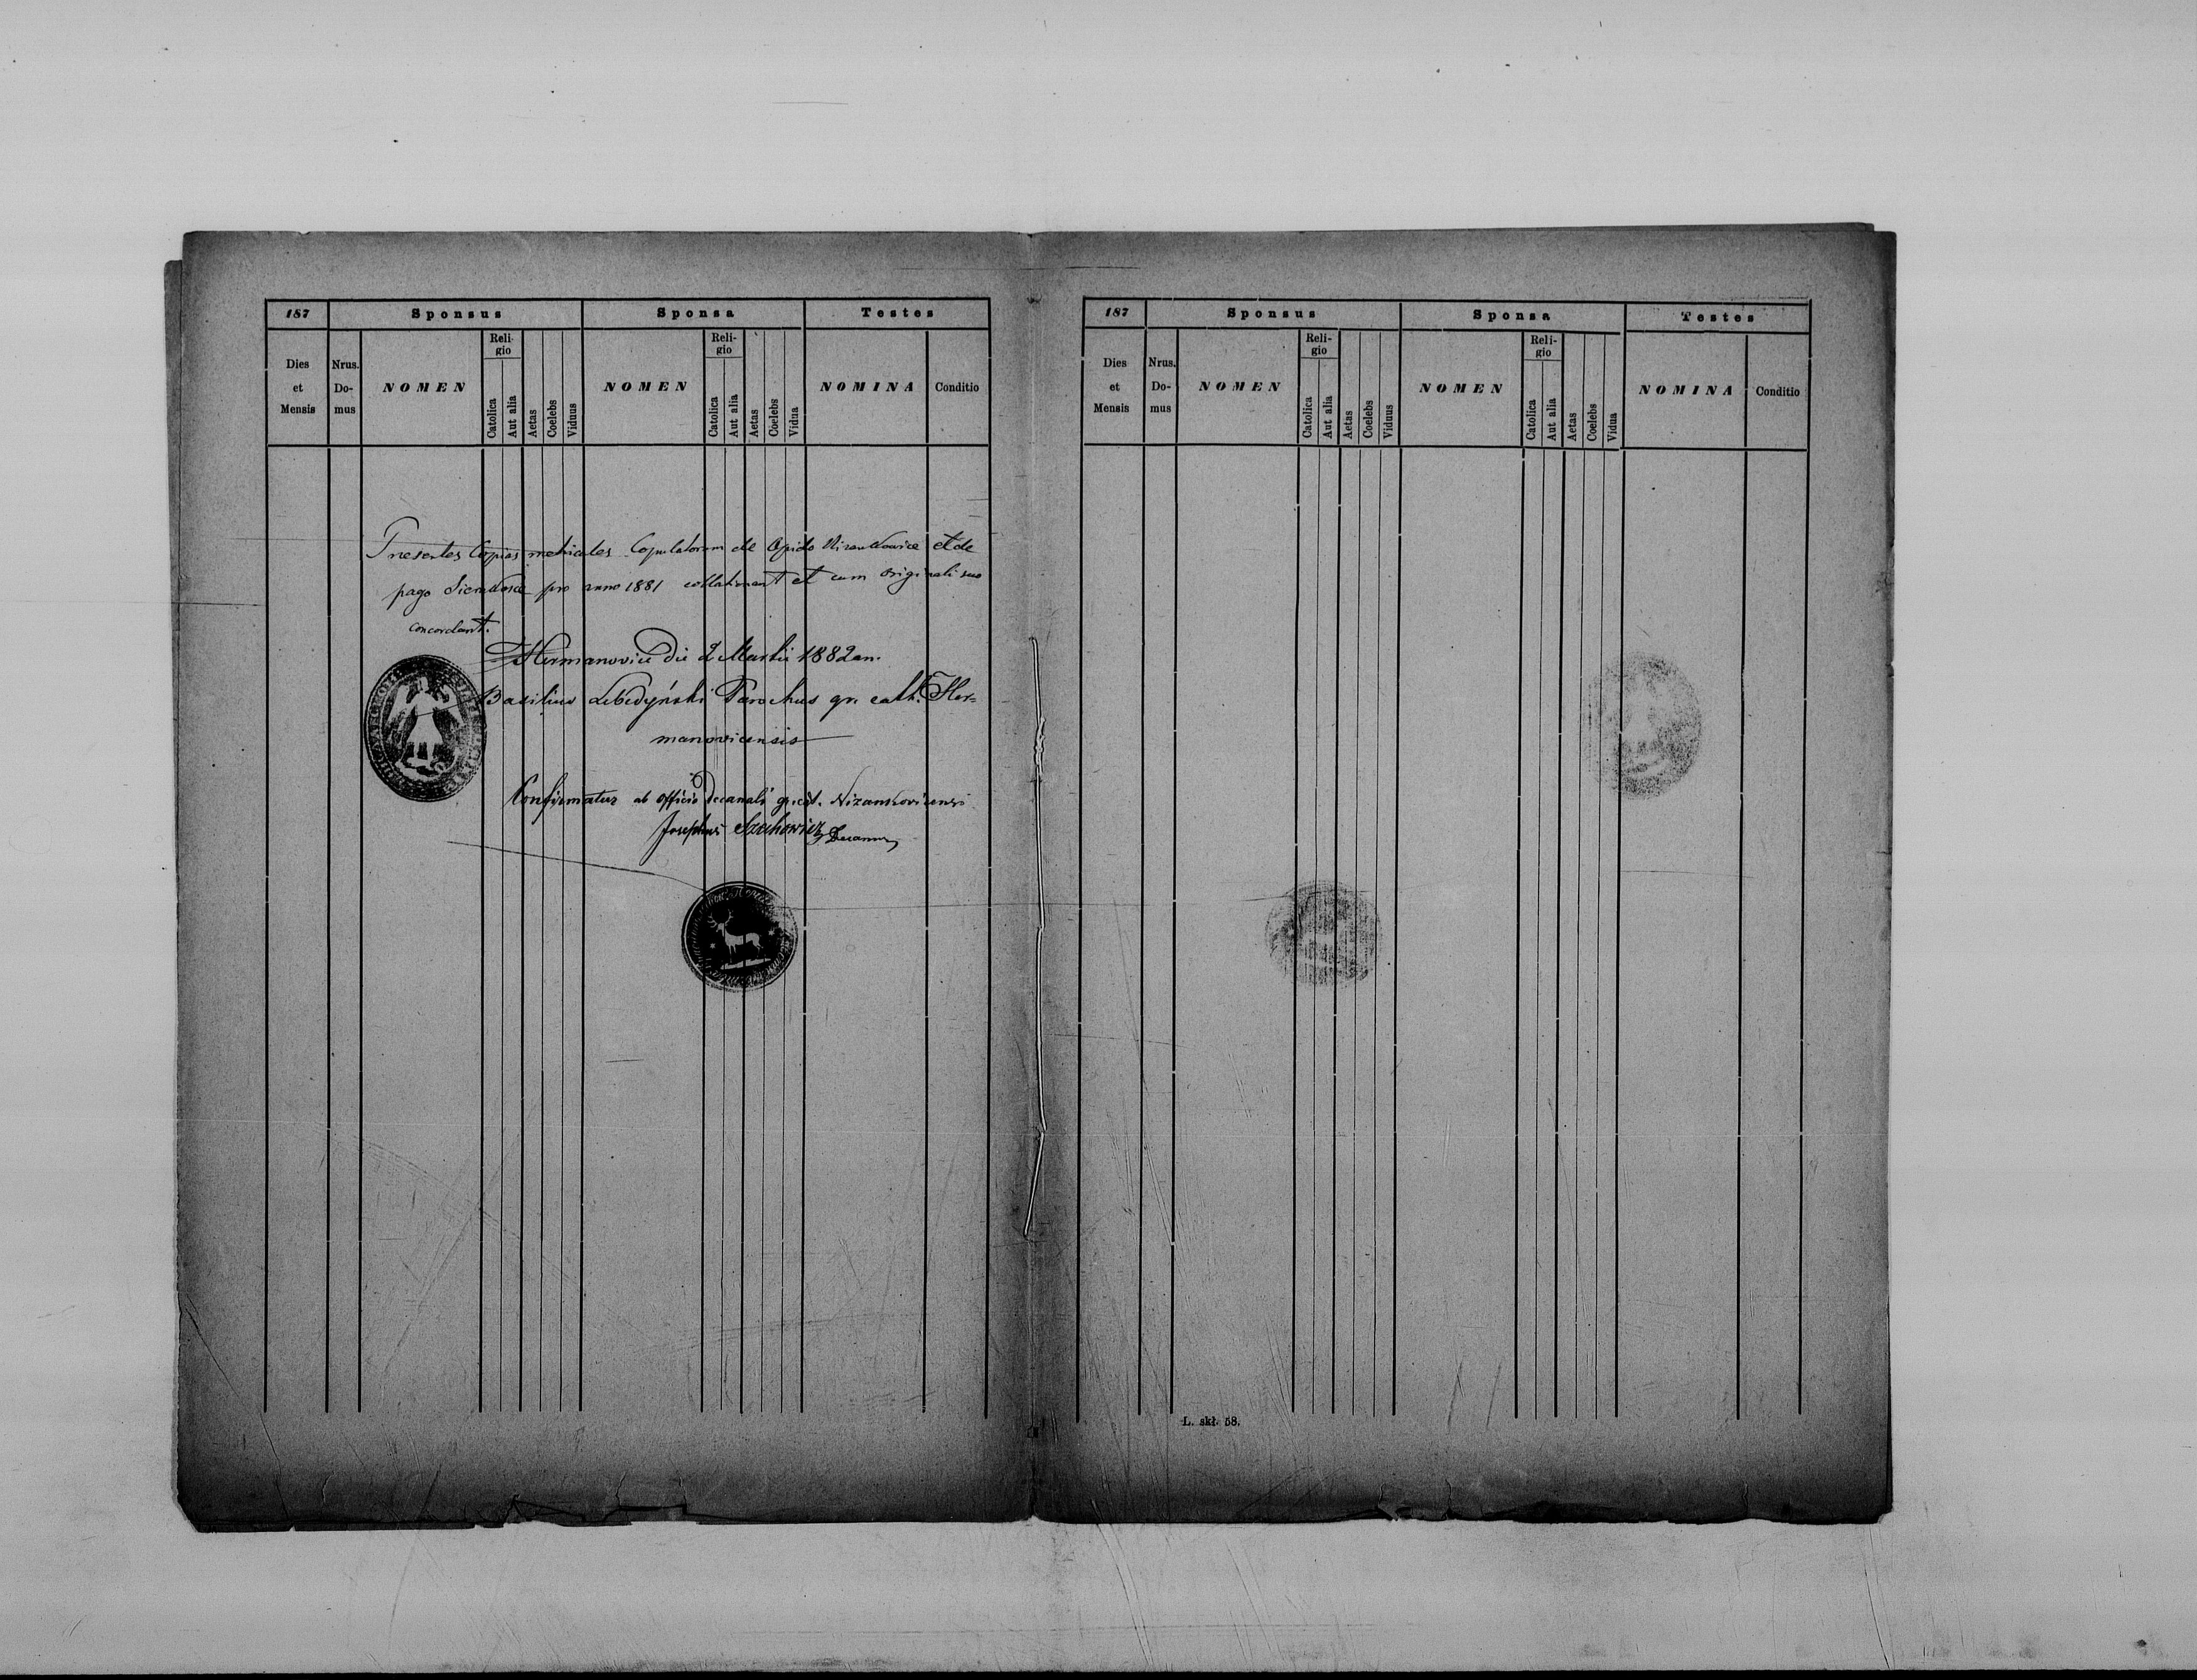 187 Sponsus Sponsa Testes
Dies et Mensis Nrus. Do- mus NOMEN Reli- gio Catolica Aut alia Aetas Coelebs Viduus NOMEN Reli- gio Catolica Aut alia Aetas Coelebs Vidua NOMINA Conditio
Presentes Copias metricales Copulatorum de Opido Nizankowice et de
pago Sierakosce pro anno 1881 collationant et cum originali suo
concordant.
Hermanovice die 2 Martii 1882 an.
Basilius Lebedyński Parochus gr. cath. Her=
manovicensis
Confirmatur ab officio Decanali gr. cat. Nizankovicensi
Josephus Szechowicz Decanus
187 Sponsus Sponsa Testes
Dies et Mensis Nrus. Do- mus NOMEN Reli- gio Catolica Aut alia Aetas Coelebs Viduus NOMEN Reli- gio Catolica Aut alia Aetas Coelebs Vidua NOMINA Conditio
L. skł. 58.